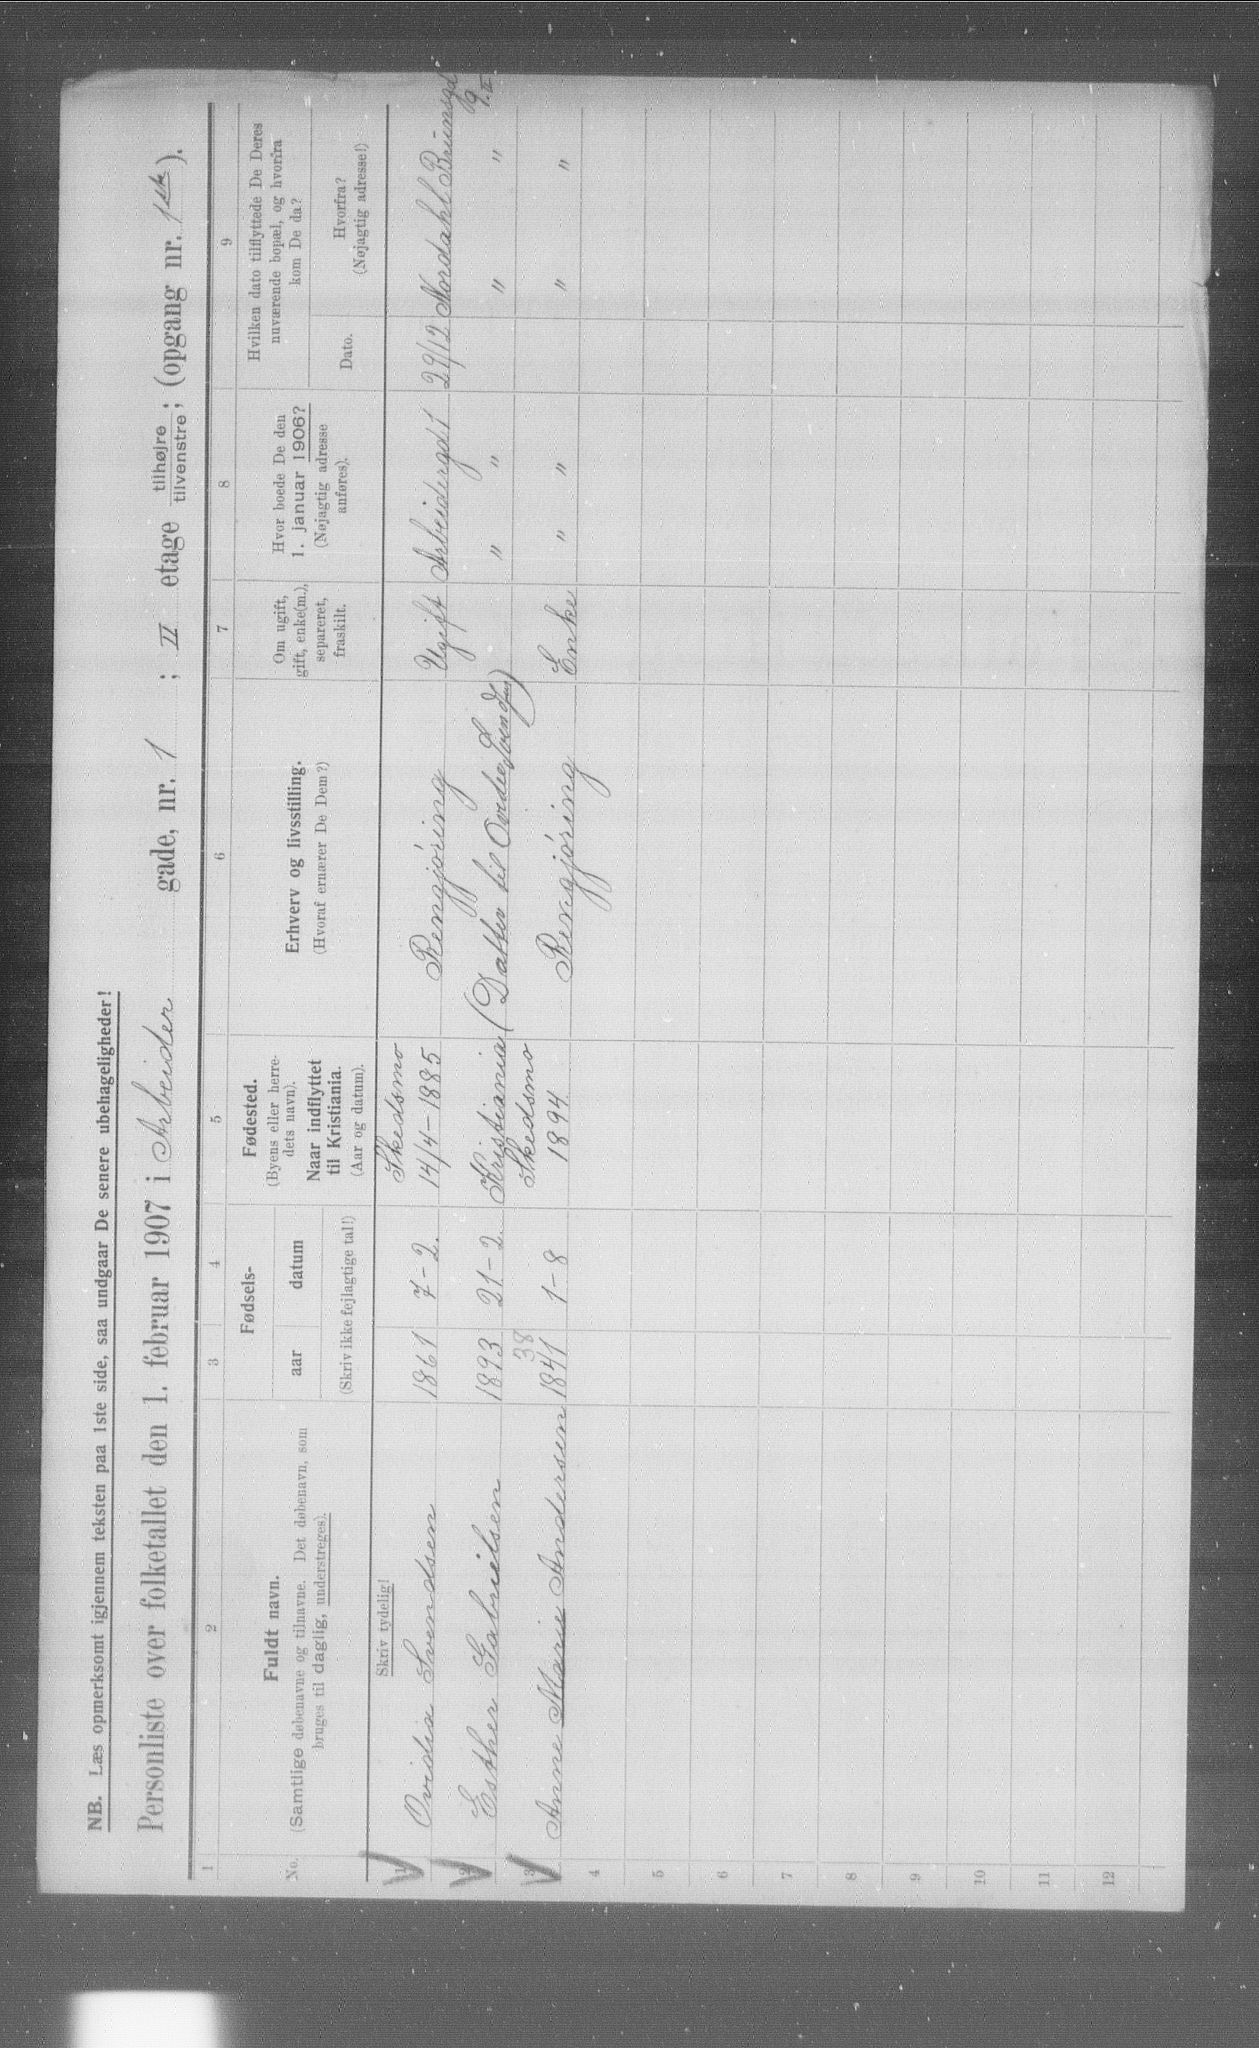 NB. Læs opmerksomt igjennem teksten paa 1ste side, saa undgaar De senere ubehageligheder!
Personliste over folketallet den 1. februar 1907 i Arbeider gade, nr. 1 ; II etage tilhøjre tilvenstre ; (opgang nr. 1ste).
1 2 3 4 5 6 7 8 9
No.
Fuldt navn.
(Samtlige døbenavne og tilnavne. Det døbenavn, som
bruges til daglig, understreges).
Fødsels-
aar datum
(Skriv ikke fejlagtige tal!)
Fødested.
(Byens eller herre-
dets navn).
Naar indflyttet
til Kristiania.
(Aar og datum).
Erhverv og livsstilling.
(Hvoraf ernærer De Dem?)
Om ugift,
gift, enke(m.),
separeret,
fraskilt.
Hvor boede De den
1. januar 1906?
(Nøjagtig adresse
anføres).
Hvilken dato tilflyttede De Deres
nuværende bopæl, og hvorfra
kom De da?
Dato.
Hvorfra?
(Nøjagtig adresse!)
Skriv tydelig!
Skedsmo
1 Ovidia Svendsen 1861 7-2. 14/4-1885 Rengjøring Ugift Arbeidergd 1 29/12 Nordahl Brunsgd
9. II
2 Esther Gabrielsen 1893 21-2. Kristiania (Datter til Ovidie Svendsen) " " " "
38 Skedsmo
3 Anne Marie Andersen 1841 1-8 1894. Rengjøring Enke " " " "
4
5
6
7
8
9
10
11
12